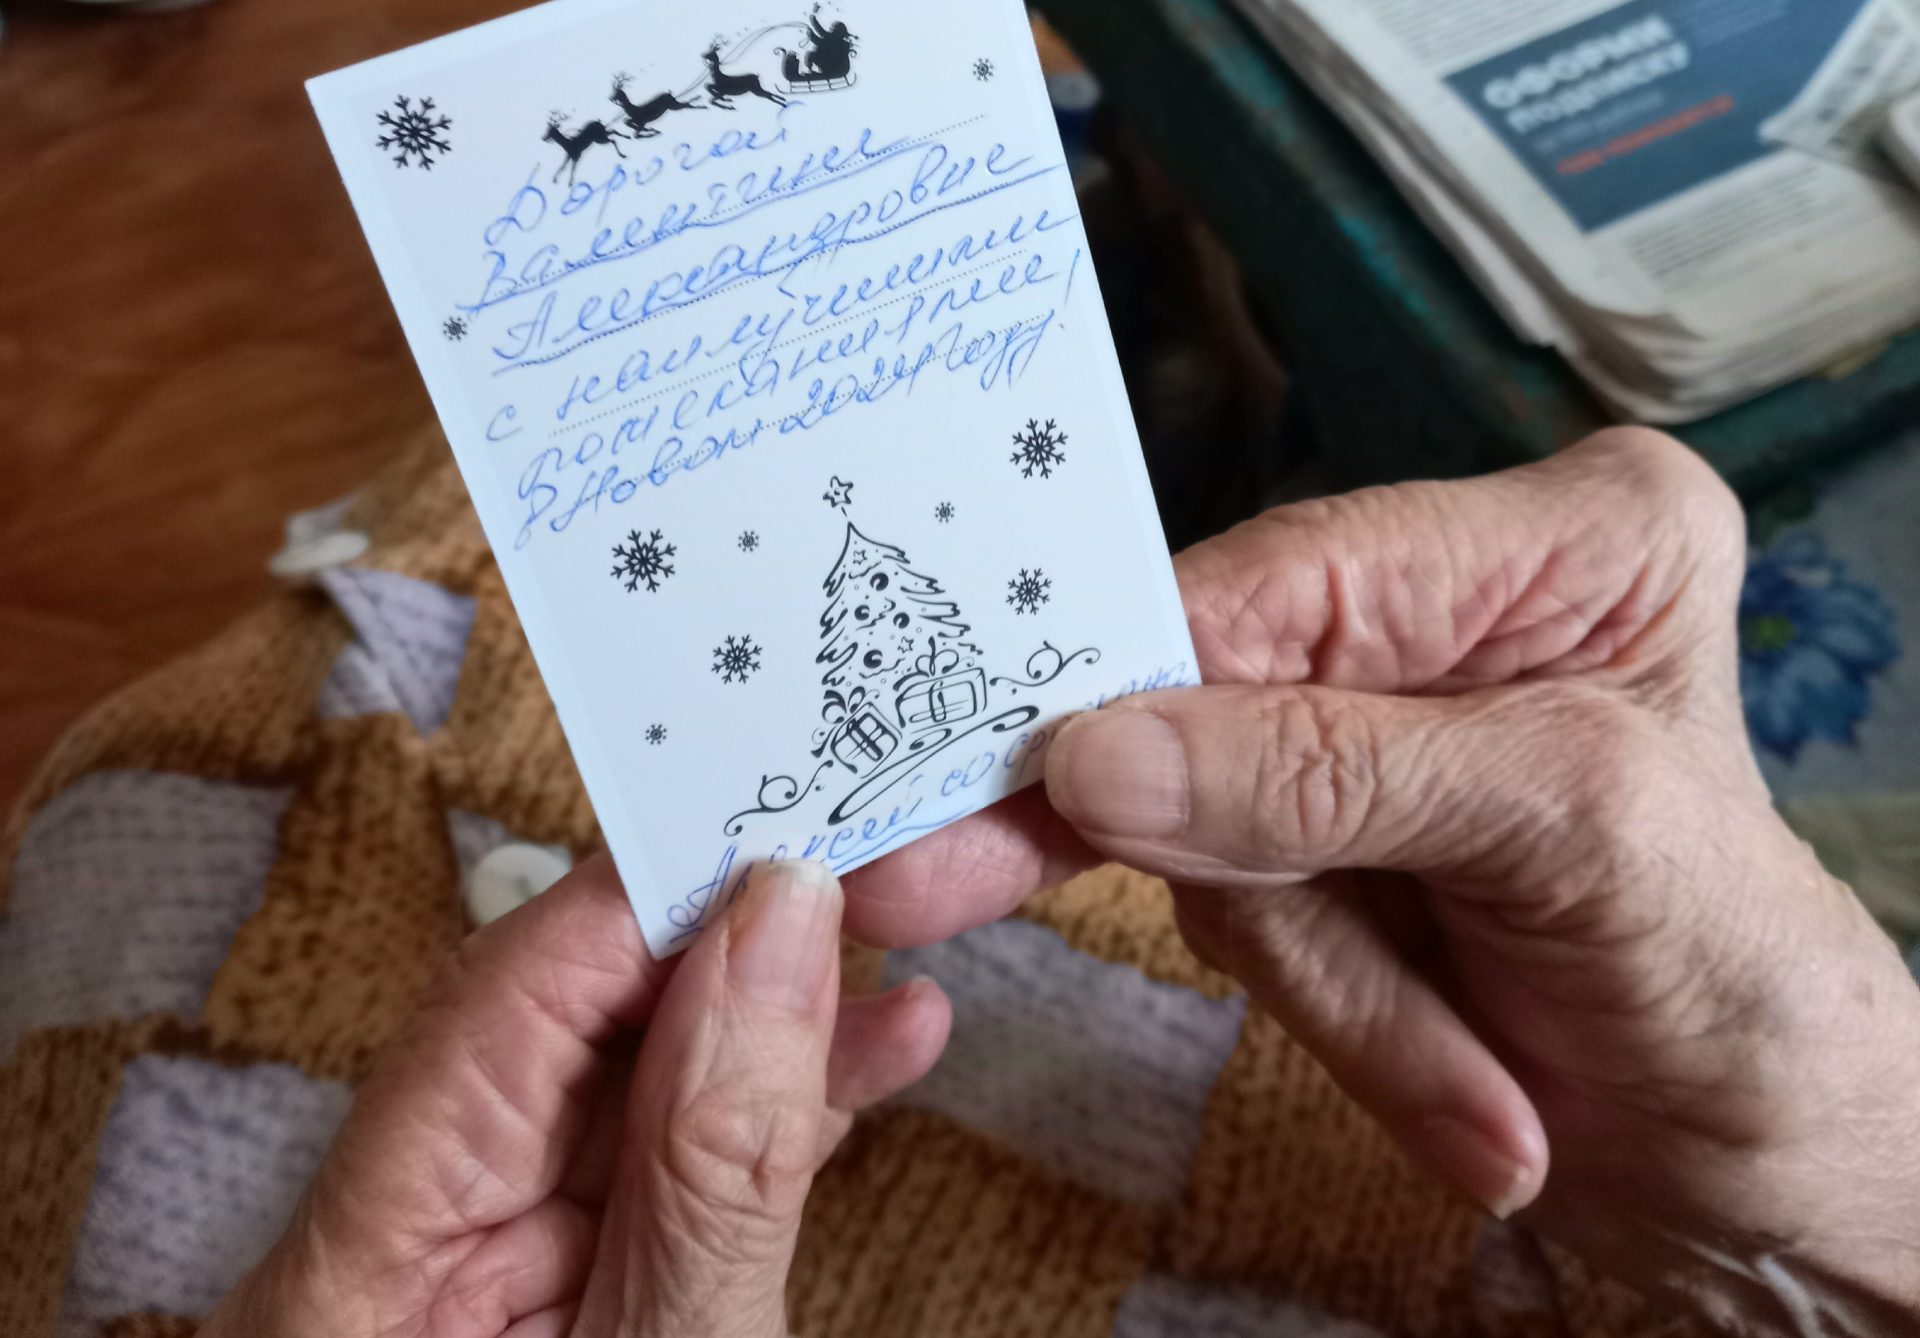 Дорогой
Валентине
Александровне
с наилучшими
пожеланиями!
в Новом 2024 Году.
Алексей со
ОФОРМИ
ПОДПИСКУ